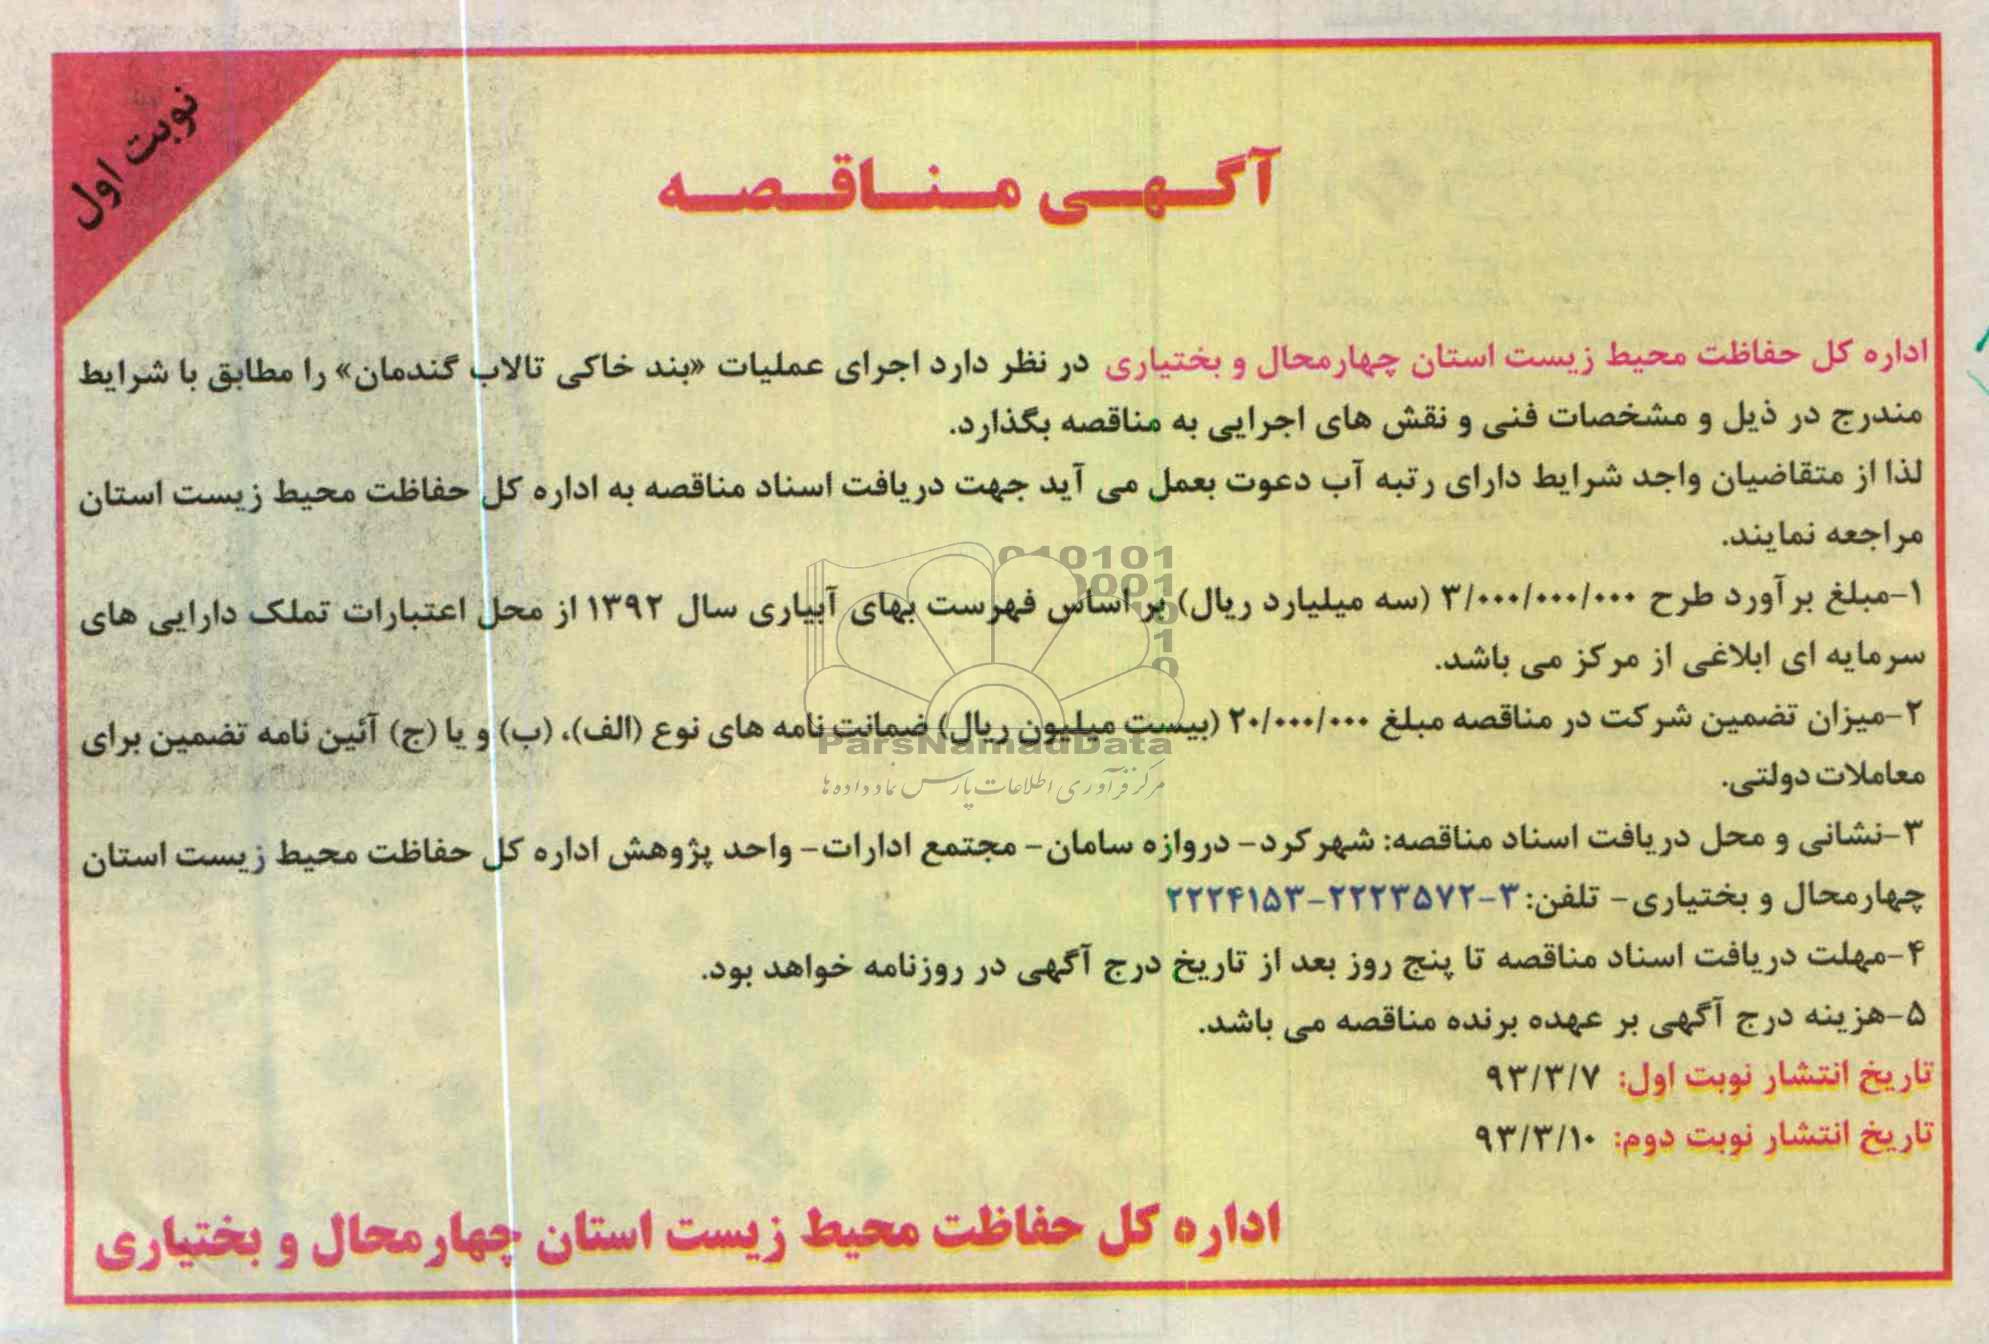 نوبت اول
آگهی مناقصه
اداره کل حفاظت محیط زیست استان چهارمحال و بختیاری در نظر دارد اجرای عملیات «بند خاکی تالاب گندمان» را مطابق با شرایط
مندرج در ذیل و مشخصات فنی و نقش های اجرایی به مناقصه بگذارد.
لذا از متقاضیان واجد شرایط دارای رتبه آب دعوت بعمل می آید جهت دریافت اسناد مناقصه به اداره کل حفاظت محیط زیست استان
مراجعه نمایند.
۱-مبلغ برآورد طرح ۳/۰۰۰/۰۰۰/۰۰۰ (سه میلیارد ریال) بر اساس فهرست بهای آبیاری سال ۱۳۹۲ از محل اعتبارات تملک دارایی های
سرمایه ای ابلاغی از مرکز می باشد.
۲-میزان تضمین شرکت در مناقصه مبلغ ۲۰/۰۰۰/۰۰۰ (بیست میلیون ریال) ضمانت نامه های نوع (الف)، (ب) و یا (ج) آئین نامه تضمین برای
معاملات دولتی.
۳-نشانی و محل دریافت اسناد مناقصه: شهرکرد- دروازه سامان- مجتمع ادارات- واحد پژوهش اداره کل حفاظت محیط زیست استان
چهارمحال و بختیاری- تلفن: ۳-۲۲۲۳۵۷۲-۲۲۲۴۱۵۳
۴-مهلت دریافت اسناد مناقصه تا پنج روز بعد از تاریخ درج آگهی در روزنامه خواهد بود.
۵-هزینه درج آگهی بر عهده برنده مناقصه می باشد.
تاریخ انتشار نوبت اول: ۹۳/۳/۷
تاریخ انتشار نوبت دوم: ۹۳/۳/۱۰
اداره کل حفاظت محیط زیست استان چهارمحال و بختیاری
ParsNamadData
مرکز فرآوری اطلاعات پارس نماد داده ها